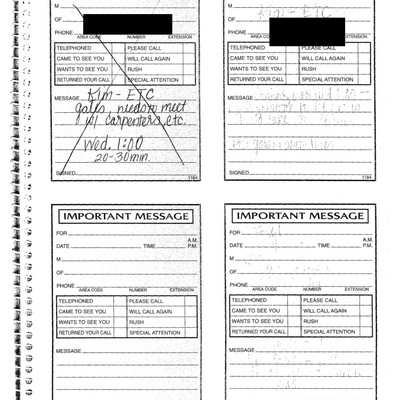 M
OF
PHONE
AREA CODE NUMBER EXTENSION
TELEPHONED PLEASE CALL
CAME TO SEE YOU WILL CALL AGAIN
WANTS TO SEE YOU RUSH
RETURNED YOUR CALL SPECIAL ATTENTION
MESSAGE Kim - ETC
galen needs to meet
w/ carpenters, etc.
Wed. 1:00
20-30 min.
SIGNED
1184
M Kim - ETC
OF
PHONE
AREA CODE NUMBER EXTENSION
TELEPHONED PLEASE CALL
CAME TO SEE YOU WILL CALL AGAIN
WANTS TO SEE YOU RUSH
RETURNED YOUR CALL SPECIAL ATTENTION
MESSAGE
SIGNED
1184
IMPORTANT MESSAGE
FOR
DATE TIME A.M. P.M.
M
OF
PHONE
AREA CODE NUMBER EXTENSION
TELEPHONED PLEASE CALL
CAME TO SEE YOU WILL CALL AGAIN
WANTS TO SEE YOU RUSH
RETURNED YOUR CALL SPECIAL ATTENTION
MESSAGE
IMPORTANT MESSAGE
FOR
DATE TIME A.M. P.M.
M
OF
PHONE
AREA CODE NUMBER EXTENSION
TELEPHONED PLEASE CALL
CAME TO SEE YOU WILL CALL AGAIN
WANTS TO SEE YOU RUSH
RETURNED YOUR CALL SPECIAL ATTENTION
MESSAGE